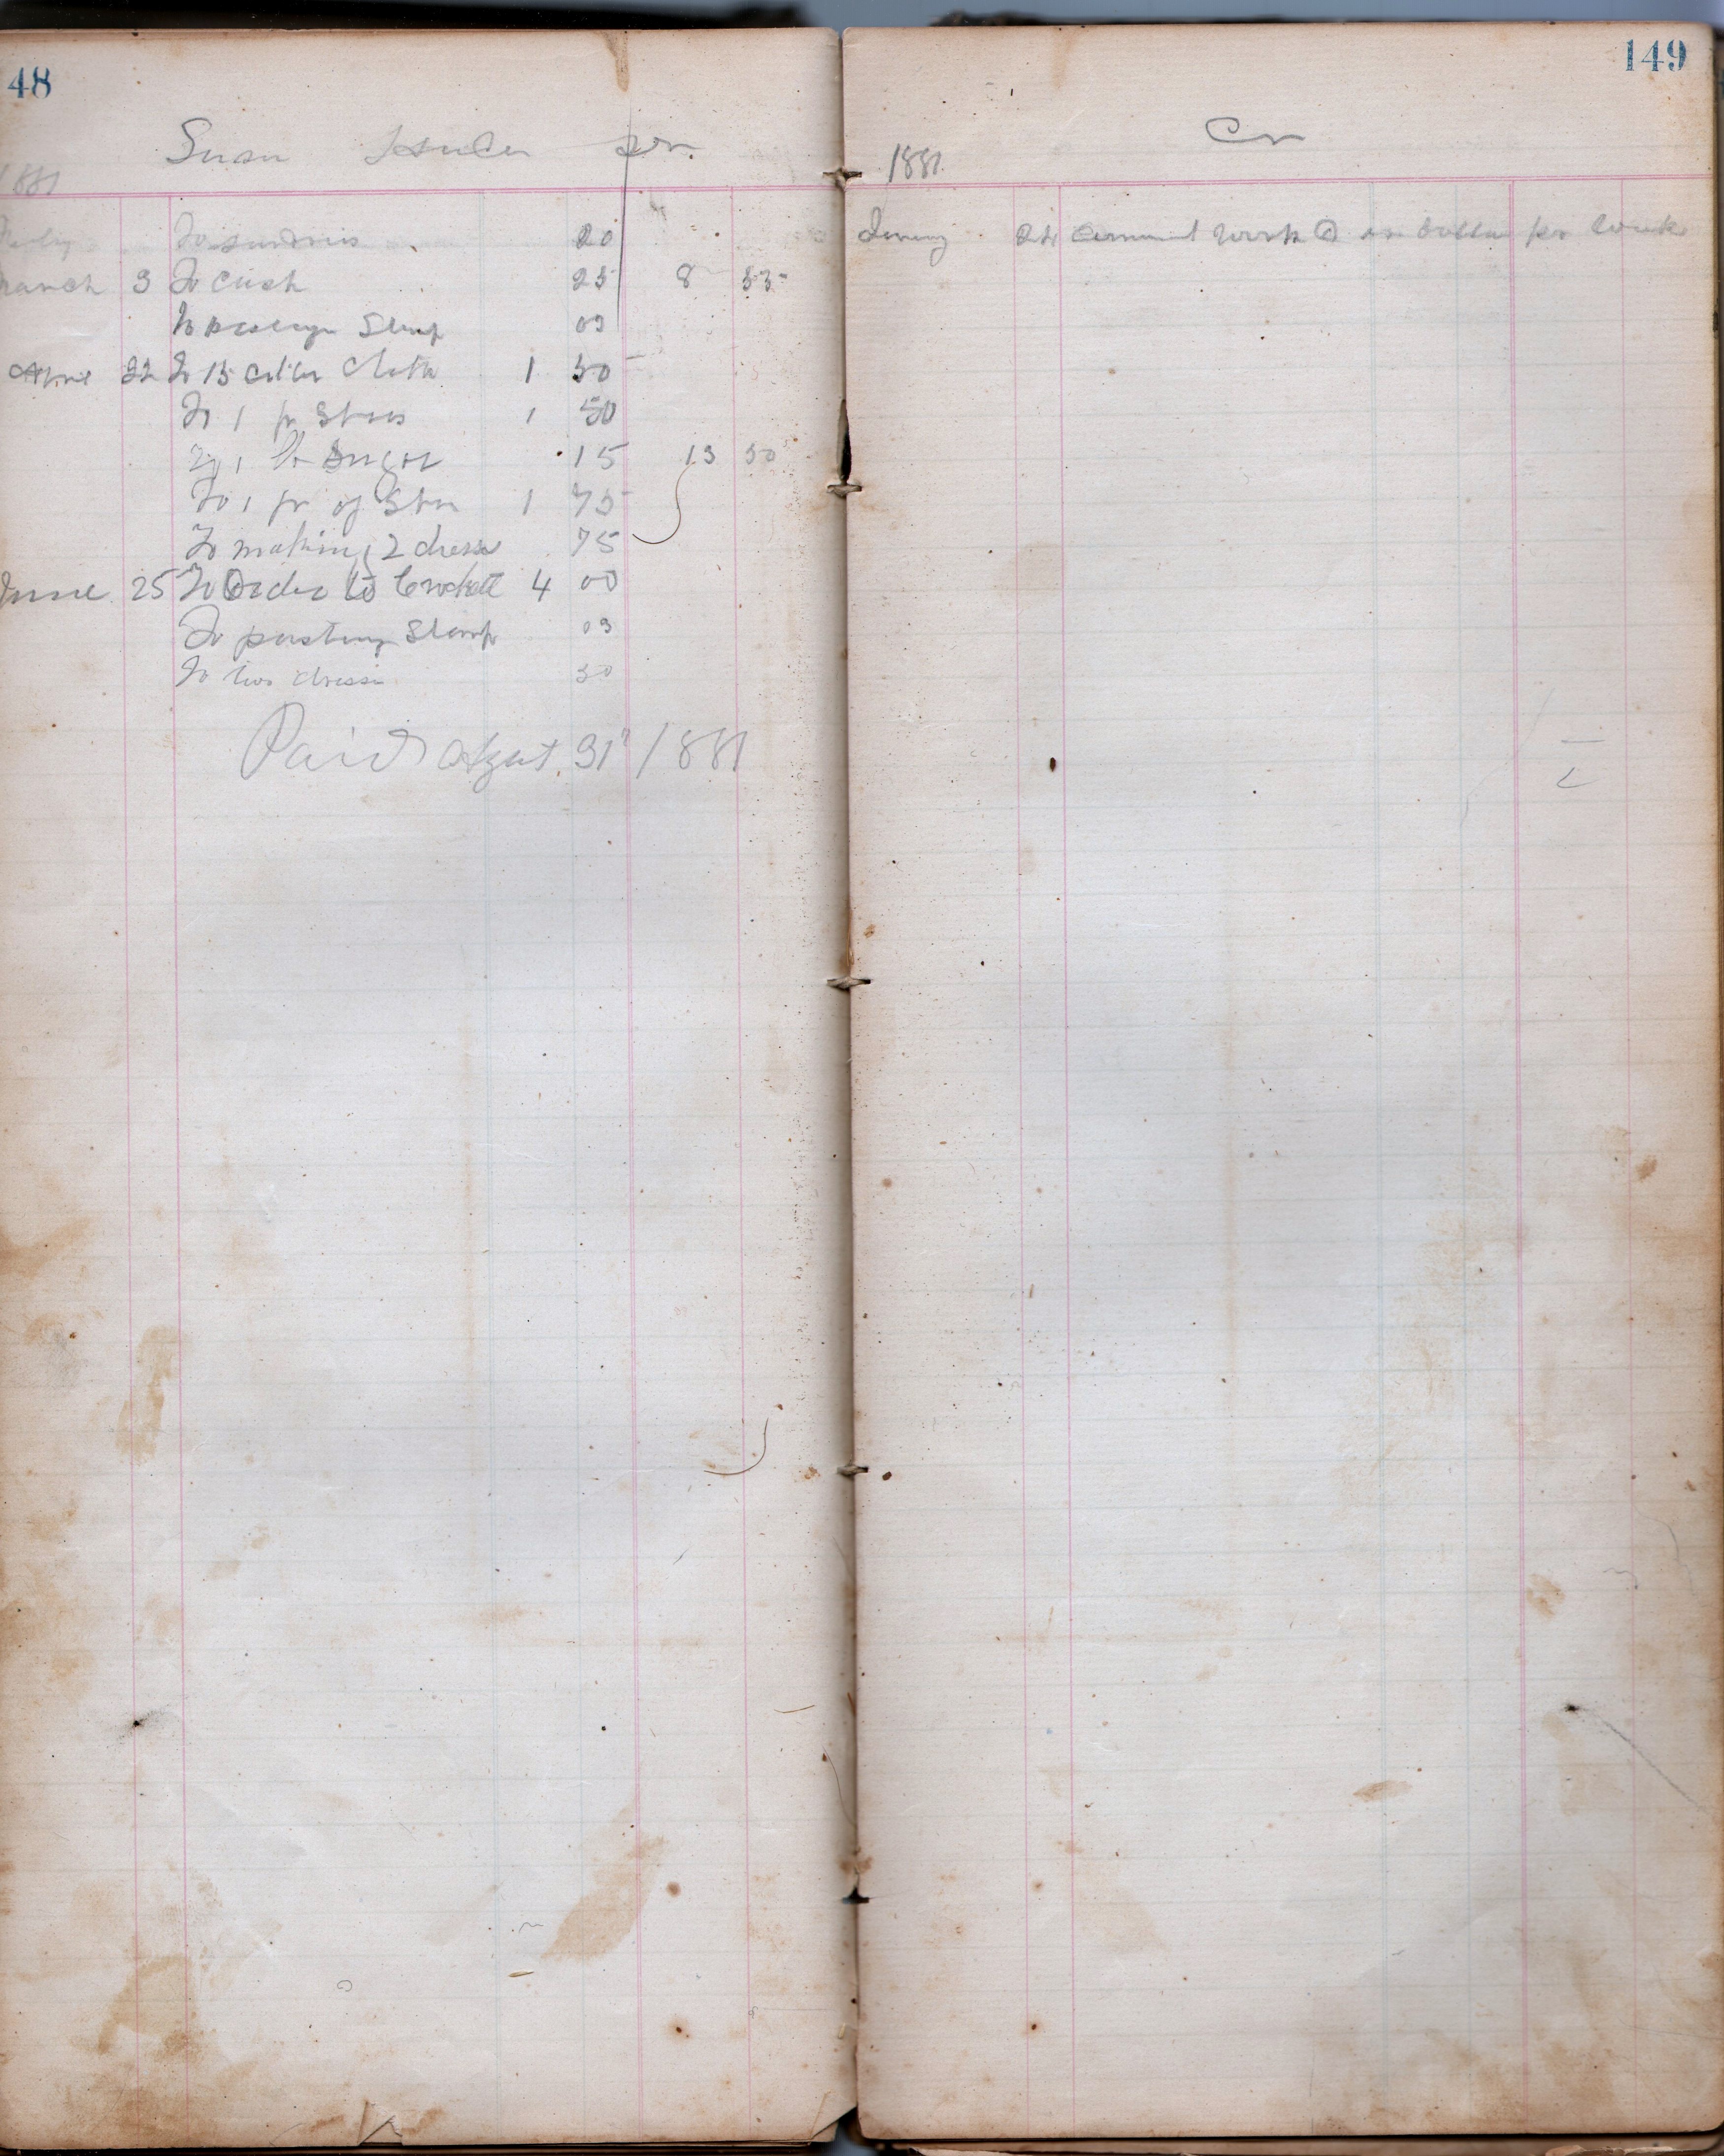 48
Susan Dr.
1881
To sundries 20
March 3 To Cash 25 8 55
To postage Stamp 03
April 22 To 15 Cotton Cloth 1 50
To 1 pr Shoes 1 50
To 1 lb Sugar 15 13 50
To 1 pr of Shoe 1 75
To making 2 dresse 75
June 25 To Order to Crockett 4 00
To postag Stamp 03
To two dresse 30
Paid August 31 1881
149
Cr
1881
24 Work @ on dollar per week